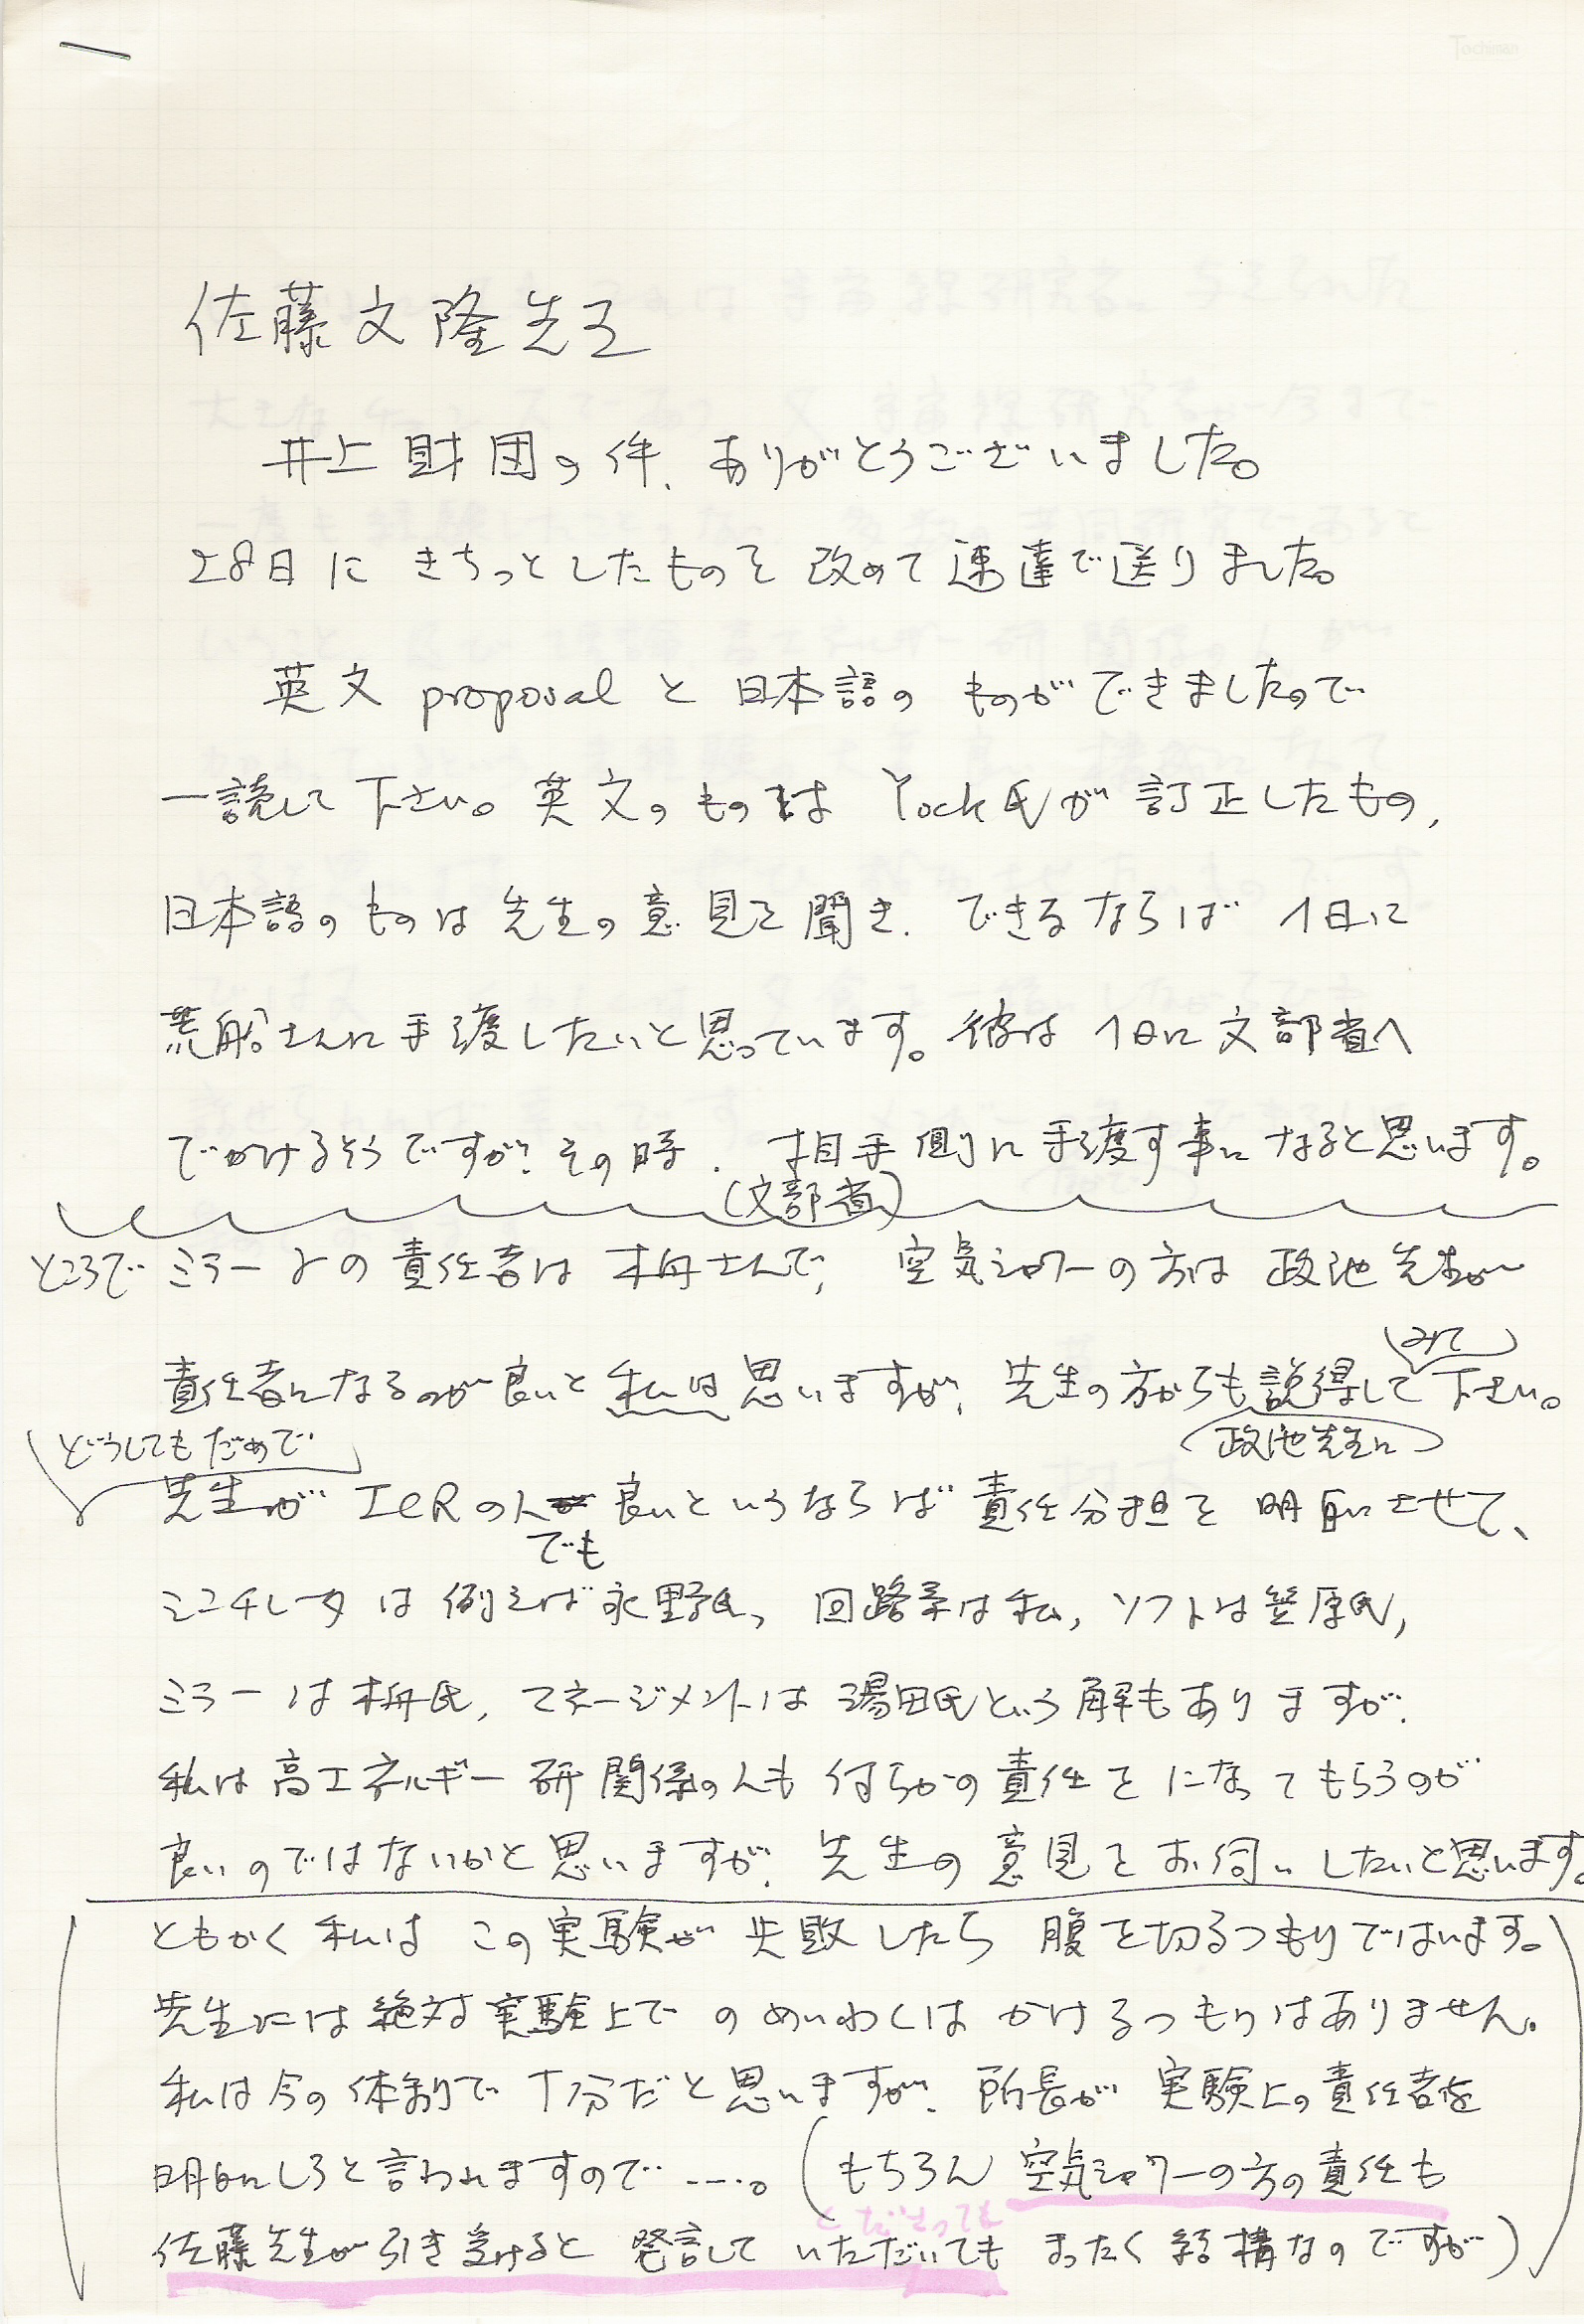 Tochiman
佐藤文隆先生
井上財団の件、ありがとうございました。
28日に きちっとしたものを 改めて速達で送りました。
英文 proposal と 日本語の ものができましたので
一読して下さい。英文のものは Yock氏が訂正したもの、
日本語のものは先生の意見を聞き、できるならば 1日に
荒船さんに手渡したいと思っています。彼は 1日に文部省へ
でかけるそうですが、その時、相手側に手渡す事になると思います。
(文部省)
ところで ミラーγの責任者は 柵さんで、空気シャワーの方は 政池先生が
責任者になるのが良いと私は思いますが、先生の方からも説得して下さい。
みて
政池先生に
どうしてもだめで
先生が ICRの人 良いというならば 責任分担を 明白にさせて、
でも
ミニチレータは 例えば永野氏、回路系は私、ソフトは笠原氏、
ミラーは柵氏、マネージメントは 湯田氏という解もありますが、
私は高エネルギー研関係の人も何らかの責任をになってもらうのが
良いのではないかと思いますが、先生の意見をお伺いしたいと思います。
ともかく私は この実験が失敗したら 腹を切るつもりではいます。
先生には絶対実験上での めいわくは かけるつもりはありません。
私は今の体制で十分だと思いますが、所長が 実験上の責任者を
明白にしろと言われますので……。(もちろん 空気シャワーの方の責任も
とだまっても
佐藤先生が引き受けると発言していただいても まったく結構なのですが)